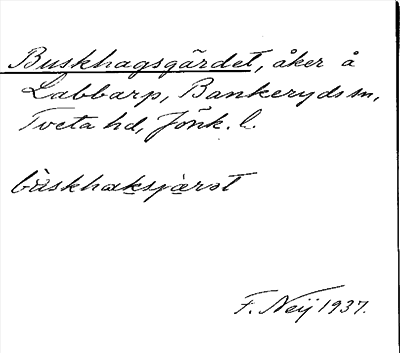 Buskhagsgärdet, åker å
Labbarp, Bankeryds sn,
Tveta hd, Jönk. l.
bùskhaksjæ̀rət
F. Neij 1937.